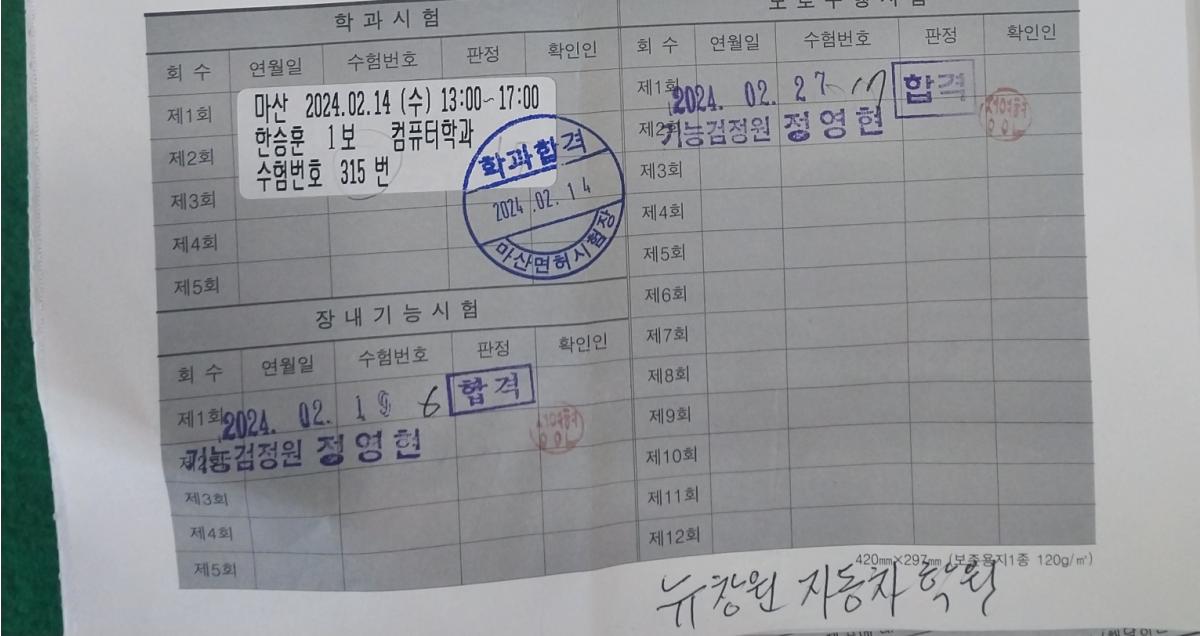 학과시험
회 수 연월일 수험번호 판정 확인인
제1회
제2회
제3회
제4회
제5회
마산 2024.02.14 (수) 13:00~17:00
한승훈 1보 컴퓨터학과
수험번호 315 번
학과합격
2024.02.14
마산면허시험장
장내기능시험
회 수 연월일 수험번호 판정 확인인
제1회 2024. 02. 19 6 합격
제2회 기능검정원 정영현
제3회
제4회
제5회
회 수 연월일 수험번호 판정 확인인
제1회 2024. 02. 27 17 합격
제2회 기능검정원 정영현
제3회
제4회
제5회
제6회
제7회
제8회
제9회
제10회
제11회
제12회
420㎜×297㎜ (보존용지1종 120g/㎡)
뉴창원 자동차학원